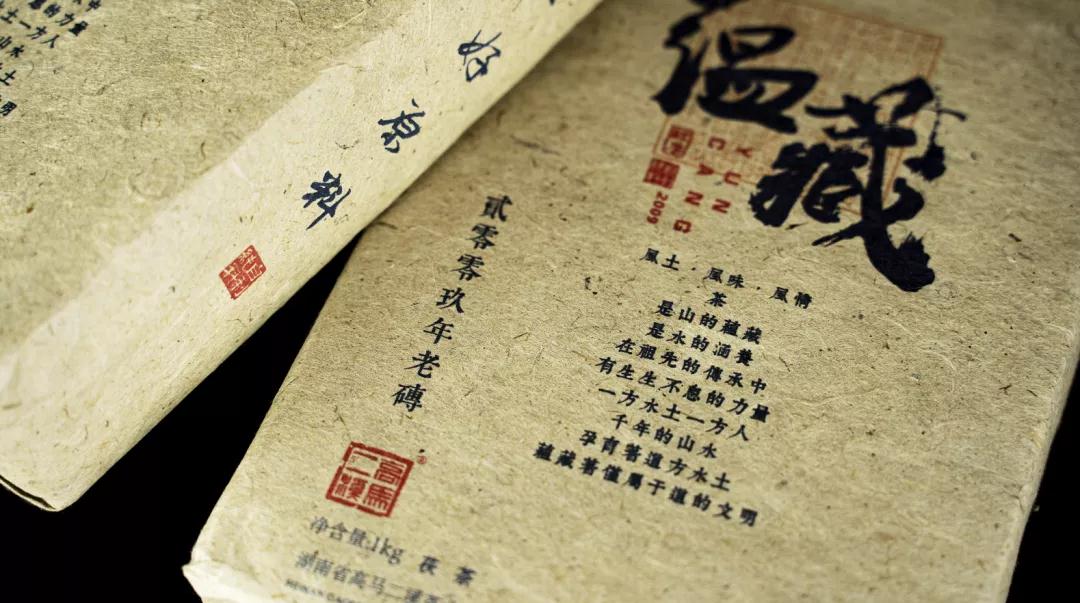 中
的力量
土一方人
山水
土
明
好原料
温藏
YUN
CANG
2009
貳零零玖年老磚
風土．風味．風情
茶
是山的蘊藏
是水的涵養
在祖先的傳承中
有生生不息的力量
一方水土一方人
千年的山水
孕育著這方水土
蘊藏著僅屬于這的文明
高馬二溪
净含量:1kg 茯茶
湖南省高马二溪茶